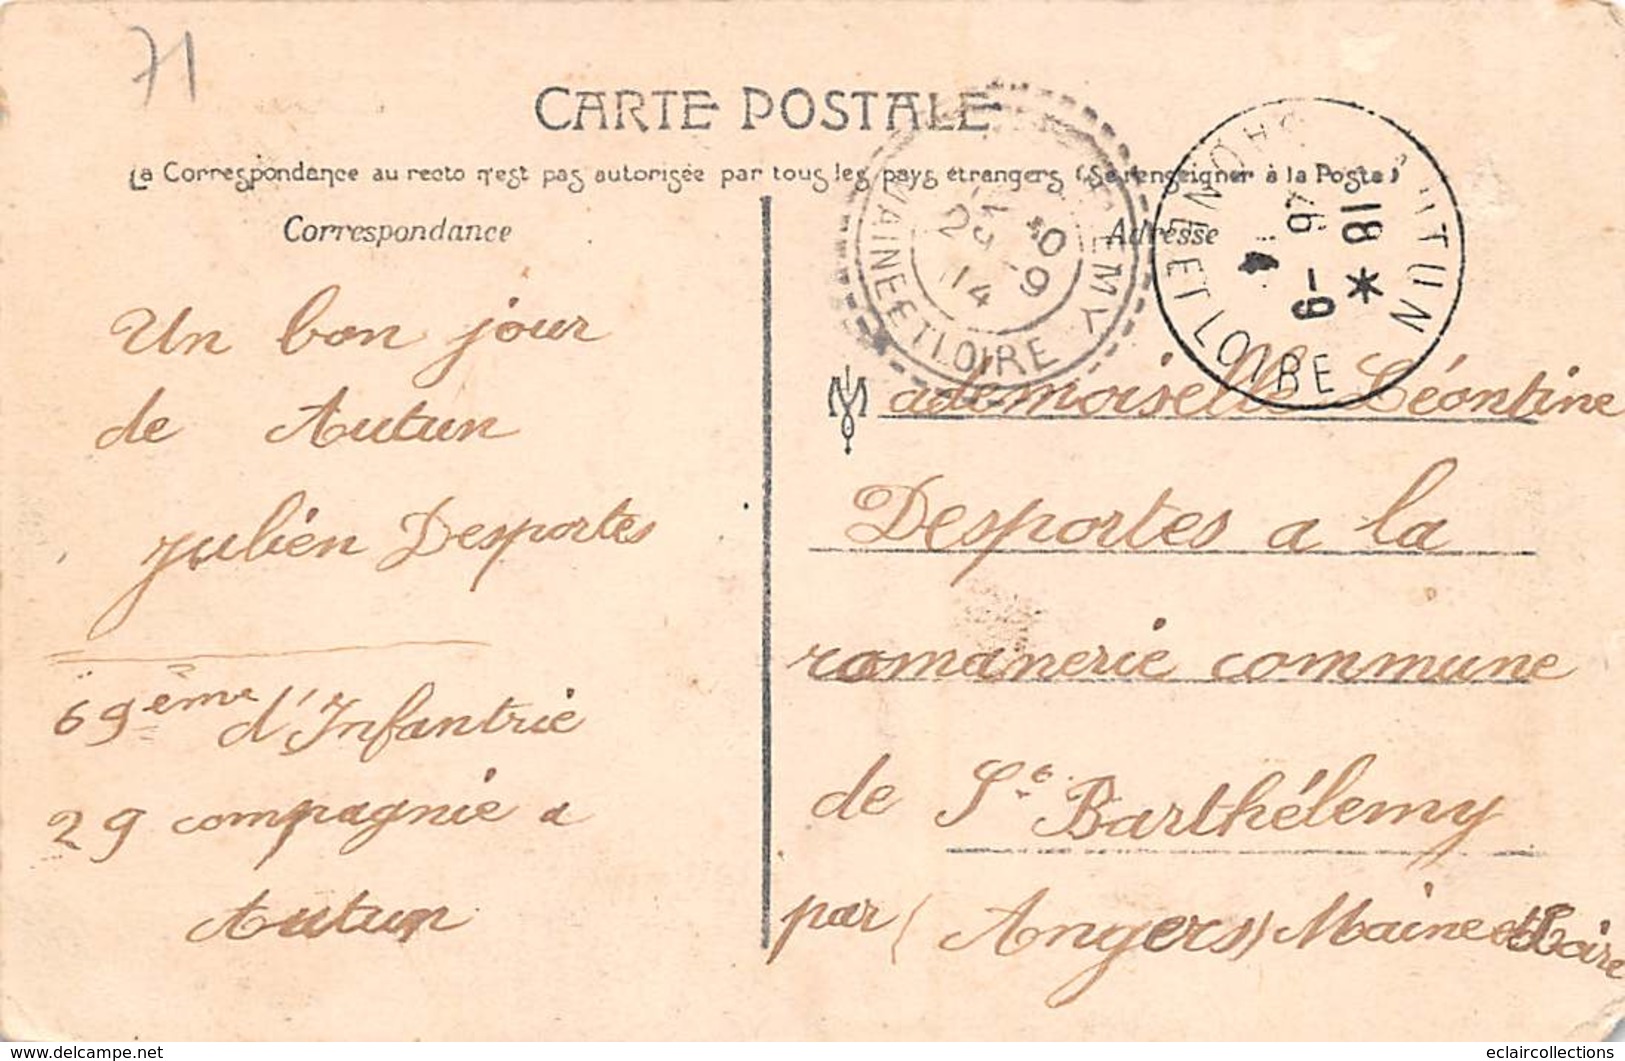 71
CARTE POSTALE
La Correspondance au recto n'est pas autorisée par tous les pays étrangers (Se renseigner à la Poste)
Correspondance
Un bon jour
de Autun
Julien Desportes
69ème d'Infantrie
29 compagnie a
Autun
Adresse
Mademoiselle Léontine
Desportes a la
romanerie commune
de St Barthélemy
par (Angers) Maine et Loire
29 - 9
14
MAINE ET LOIRE
18 *
26 - 9
ET LOIRE
eclaircollections
www.delcampe.net